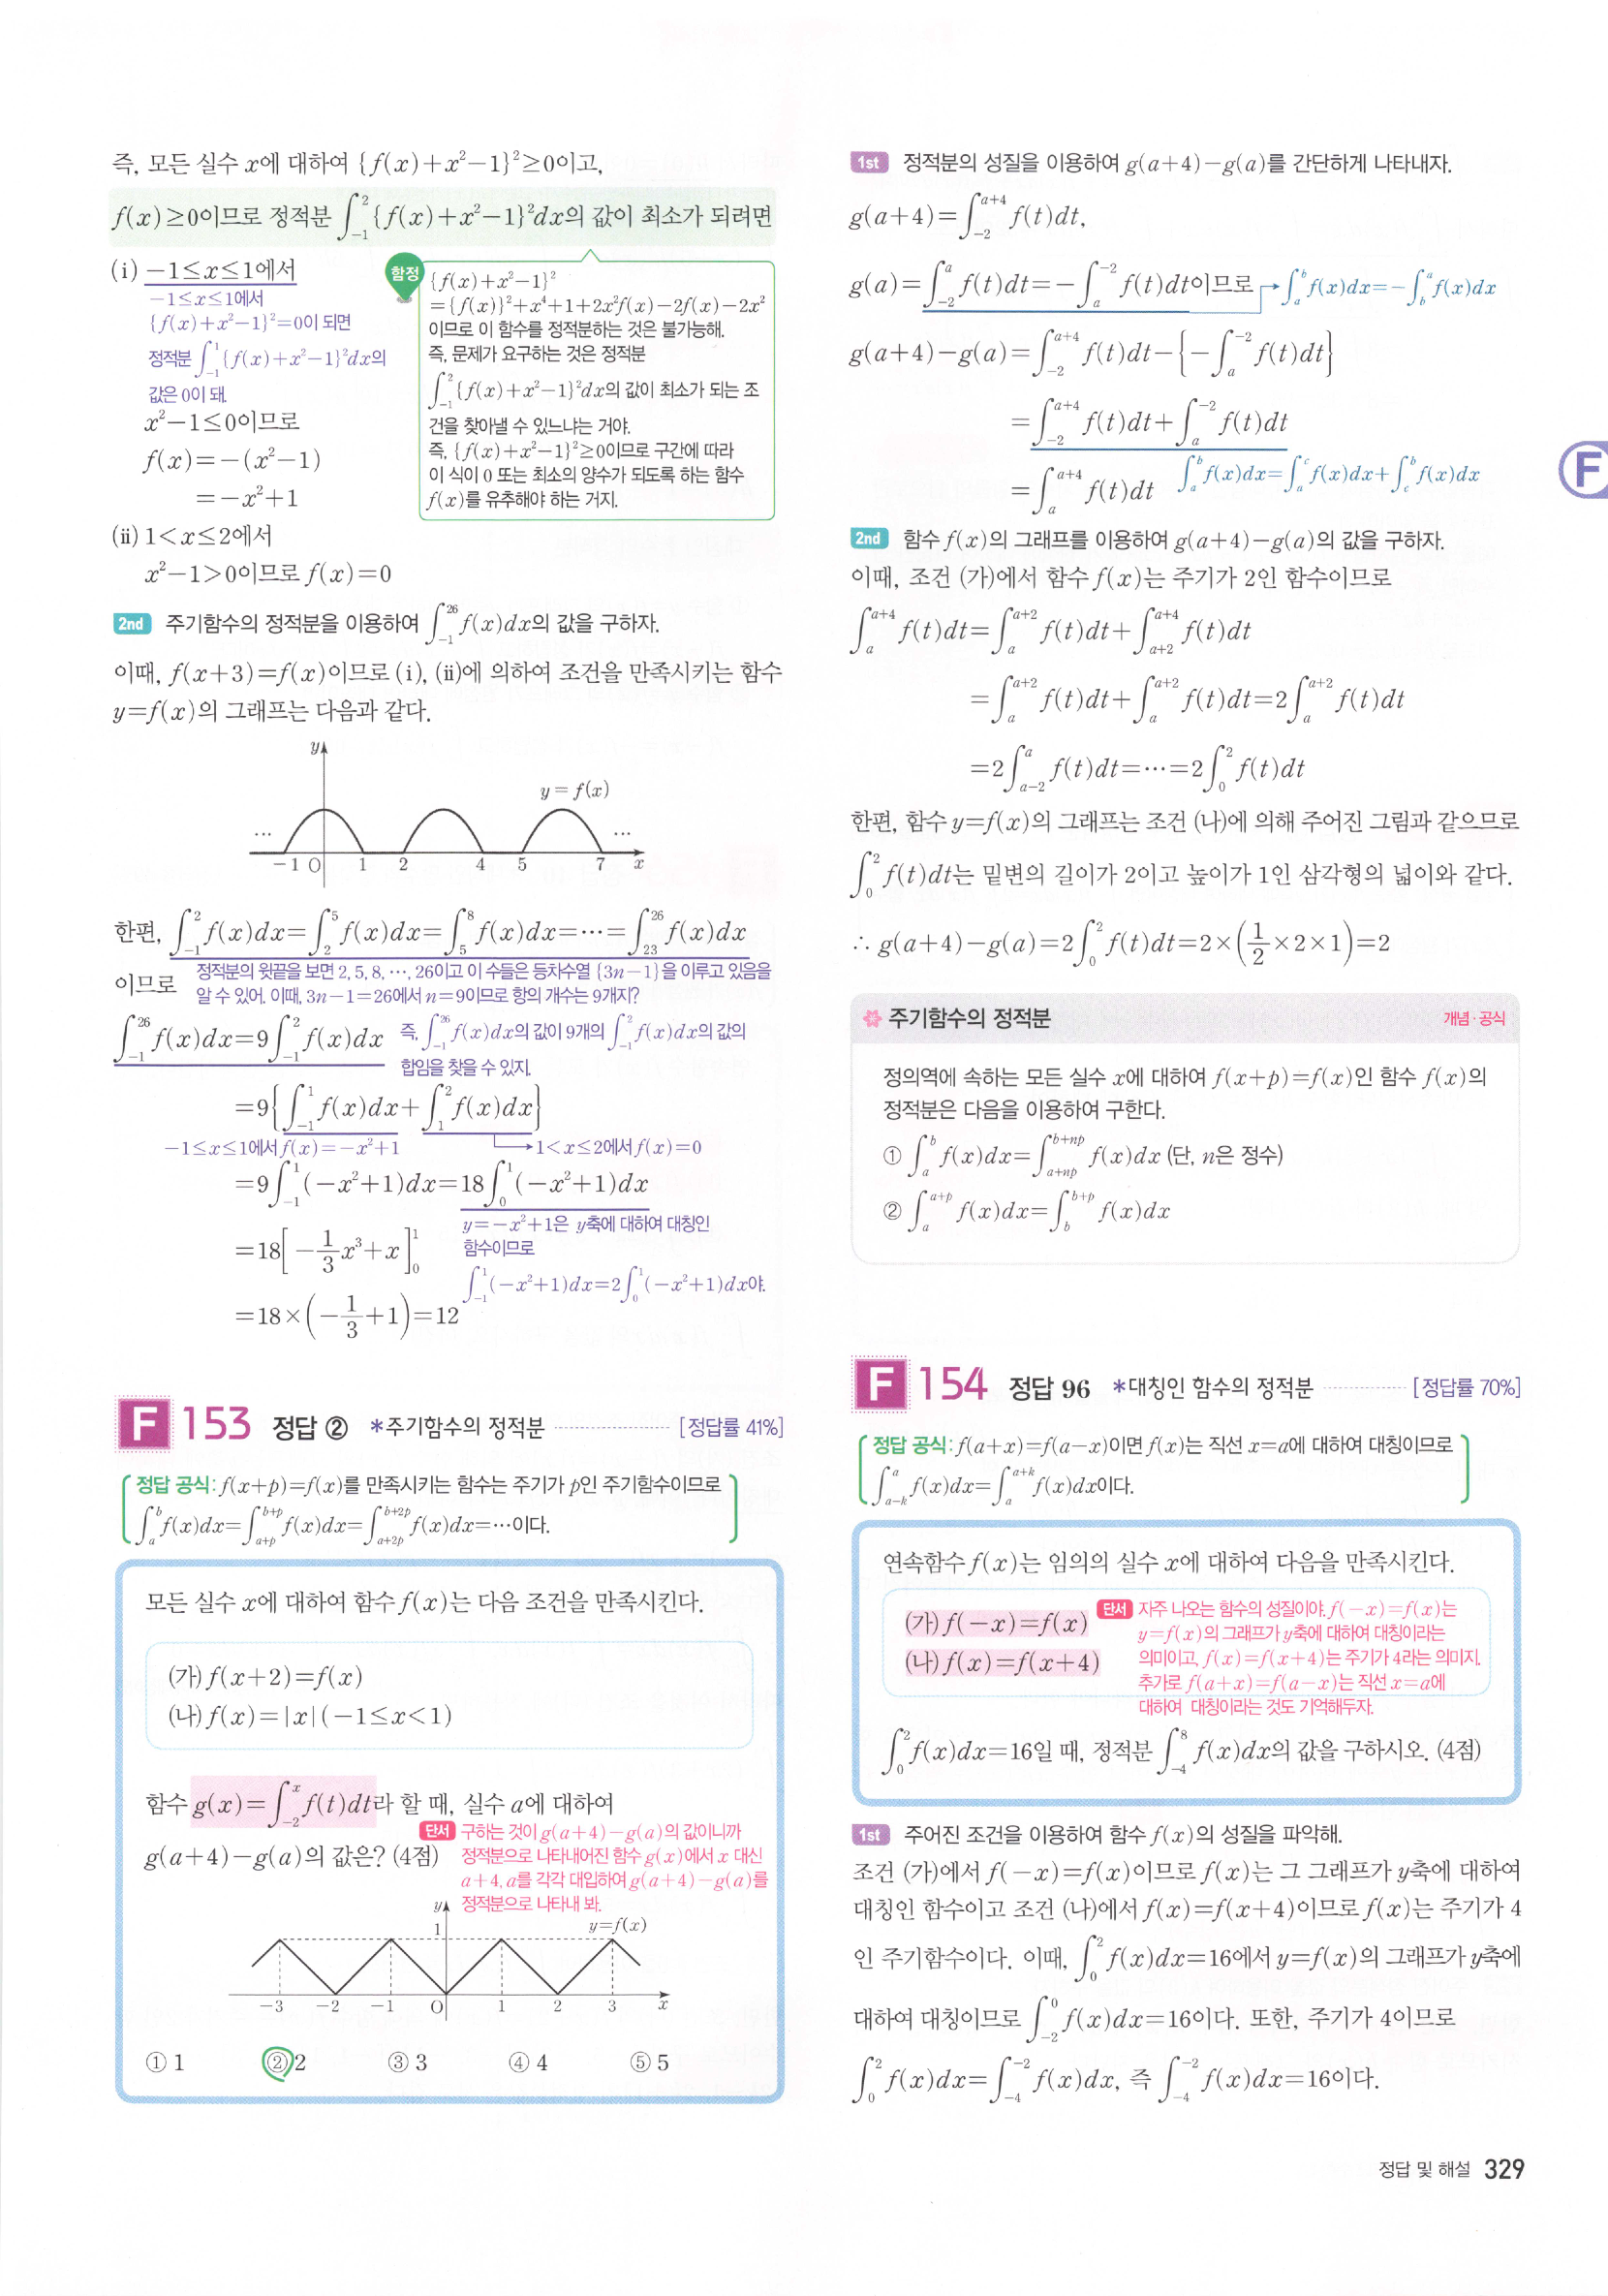 즉, 모든 실수 x에 대하여 {f(x)+x²-1}²≥0이고,
f(x)≥0이므로 정적분 ∫_{-1}^{2}{f(x)+x²-1}²dx의 값이 최소가 되려면
(ⅰ) -1≤x≤1에서
-1≤x≤1에서
{f(x)+x²-1}²=0이 되면
정적분 ∫_{-1}^{1}{f(x)+x²-1}²dx의
값은 0이 돼.
x²-1≤0이므로
f(x)=-(x²-1)
=-x²+1
(ⅱ) 1<x≤2에서
x²-1>0이므로 f(x)=0
함정
{f(x)+x²-1}²
={f(x)}²+x⁴+1+2x²f(x)-2f(x)-2x²
이므로 이 함수를 정적분하는 것은 불가능해.
즉, 문제가 요구하는 것은 정적분
∫_{-1}^{2}{f(x)+x²-1}²dx의 값이 최소가 되는 조
건을 찾아낼 수 있느냐는 거야.
즉, {f(x)+x²-1}²≥0이므로 구간에 따라
이 식이 0 또는 최소의 양수가 되도록 하는 함수
f(x)를 유추해야 하는 거지.
2nd 주기함수의 정적분을 이용하여 ∫_{-1}^{26}f(x)dx의 값을 구하자.
이때, f(x+3)=f(x)이므로 (ⅰ), (ⅱ)에 의하여 조건을 만족시키는 함수
y=f(x)의 그래프는 다음과 같다.
y
y=f(x)
… …
-1 O 1 2 4 5 7 x
한편, ∫_{-1}^{2}f(x)dx=∫_{2}^{5}f(x)dx=∫_{5}^{8}f(x)dx=…=∫_{23}^{26}f(x)dx
이므로
정적분의 윗끝을 보면 2, 5, 8, …, 26이고 이 수들은 등차수열 {3n-1}을 이루고 있음을
알 수 있어. 이때, 3n-1=26에서 n=9이므로 항의 개수는 9개지?
∫_{-1}^{26}f(x)dx=9∫_{-1}^{2}f(x)dx
즉, ∫_{-1}^{26}f(x)dx의 값이 9개의 ∫_{-1}^{2}f(x)dx의 값의
합임을 찾을 수 있지.
=9{∫_{-1}^{1}f(x)dx+∫_{1}^{2}f(x)dx}
-1≤x≤1에서 f(x)=-x²+1 → 1<x≤2에서 f(x)=0
=9∫_{-1}^{1}(-x²+1)dx=18∫_{0}^{1}(-x²+1)dx
y=-x²+1은 y축에 대하여 대칭인
함수이므로
∫_{-1}^{1}(-x²+1)dx=2∫_{0}^{1}(-x²+1)dx야.
=18[-1/3x³+x]_{0}^{1}
=18×(-1/3+1)=12
F 153 정답 ② *주기함수의 정적분 [정답률 41%]
정답 공식: f(x+p)=f(x)를 만족시키는 함수는 주기가 p인 주기함수이므로
∫_{a}^{b}f(x)dx=∫_{a+p}^{b+p}f(x)dx=∫_{a+2p}^{b+2p}f(x)dx=…이다.
모든 실수 x에 대하여 함수 f(x)는 다음 조건을 만족시킨다.
(가) f(x+2)=f(x)
(나) f(x)=|x| (-1≤x<1)
함수 g(x)=∫_{-2}^{x}f(t)dt라 할 때, 실수 a에 대하여
g(a+4)-g(a)의 값은? (4점)
단서 구하는 것이 g(a+4)-g(a)의 값이니까
정적분으로 나타내어진 함수 g(x)에서 x 대신
a+4, a를 각각 대입하여 g(a+4)-g(a)를
정적분으로 나타내 봐.
y
1
y=f(x)
-3 -2 -1 O 1 2 3 x
① 1 ② 2 ③ 3 ④ 4 ⑤ 5
1st 정적분의 성질을 이용하여 g(a+4)-g(a)를 간단하게 나타내자.
g(a+4)=∫_{-2}^{a+4}f(t)dt,
g(a)=∫_{-2}^{a}f(t)dt=-∫_{a}^{-2}f(t)dt이므로 → ∫_{a}^{b}f(x)dx=-∫_{b}^{a}f(x)dx
g(a+4)-g(a)=∫_{-2}^{a+4}f(t)dt-{-∫_{a}^{-2}f(t)dt}
=∫_{-2}^{a+4}f(t)dt+∫_{a}^{-2}f(t)dt
=∫_{a}^{a+4}f(t)dt ∫_{a}^{b}f(x)dx=∫_{a}^{c}f(x)dx+∫_{c}^{b}f(x)dx
F
2nd 함수 f(x)의 그래프를 이용하여 g(a+4)-g(a)의 값을 구하자.
이때, 조건 (가)에서 함수 f(x)는 주기가 2인 함수이므로
∫_{a}^{a+4}f(t)dt=∫_{a}^{a+2}f(t)dt+∫_{a+2}^{a+4}f(t)dt
=∫_{a}^{a+2}f(t)dt+∫_{a}^{a+2}f(t)dt=2∫_{a}^{a+2}f(t)dt
=2∫_{a-2}^{a}f(t)dt=…=2∫_{0}^{2}f(t)dt
한편, 함수 y=f(x)의 그래프는 조건 (나)에 의해 주어진 그림과 같으므로
∫_{0}^{2}f(t)dt는 밑변의 길이가 2이고 높이가 1인 삼각형의 넓이와 같다.
∴ g(a+4)-g(a)=2∫_{0}^{2}f(t)dt=2×(1/2×2×1)=2
주기함수의 정적분 개념·공식
정의역에 속하는 모든 실수 x에 대하여 f(x+p)=f(x)인 함수 f(x)의
정적분은 다음을 이용하여 구한다.
① ∫_{a}^{b}f(x)dx=∫_{a+np}^{b+np}f(x)dx (단, n은 정수)
② ∫_{a}^{a+p}f(x)dx=∫_{b}^{b+p}f(x)dx
F 154 정답 96 *대칭인 함수의 정적분 [정답률 70%]
정답 공식: f(a+x)=f(a-x)이면 f(x)는 직선 x=a에 대하여 대칭이므로
∫_{a-k}^{a}f(x)dx=∫_{a}^{a+k}f(x)dx이다.
연속함수 f(x)는 임의의 실수 x에 대하여 다음을 만족시킨다.
(가) f(-x)=f(x)
(나) f(x)=f(x+4)
단서 자주 나오는 함수의 성질이야. f(-x)=f(x)는
y=f(x)의 그래프가 y축에 대하여 대칭이라는
의미이고, f(x)=f(x+4)는 주기가 4라는 의미지.
추가로 f(a+x)=f(a-x)는 직선 x=a에
대하여 대칭이라는 것도 기억해두자.
∫_{0}^{2}f(x)dx=16일 때, 정적분 ∫_{-4}^{8}f(x)dx의 값을 구하시오. (4점)
1st 주어진 조건을 이용하여 함수 f(x)의 성질을 파악해.
조건 (가)에서 f(-x)=f(x)이므로 f(x)는 그 그래프가 y축에 대하여
대칭인 함수이고 조건 (나)에서 f(x)=f(x+4)이므로 f(x)는 주기가 4
인 주기함수이다. 이때, ∫_{0}^{2}f(x)dx=16에서 y=f(x)의 그래프가 y축에
대하여 대칭이므로 ∫_{-2}^{0}f(x)dx=16이다. 또한, 주기가 4이므로
∫_{0}^{2}f(x)dx=∫_{-4}^{-2}f(x)dx, 즉 ∫_{-4}^{-2}f(x)dx=16이다.
정답 및 해설 329